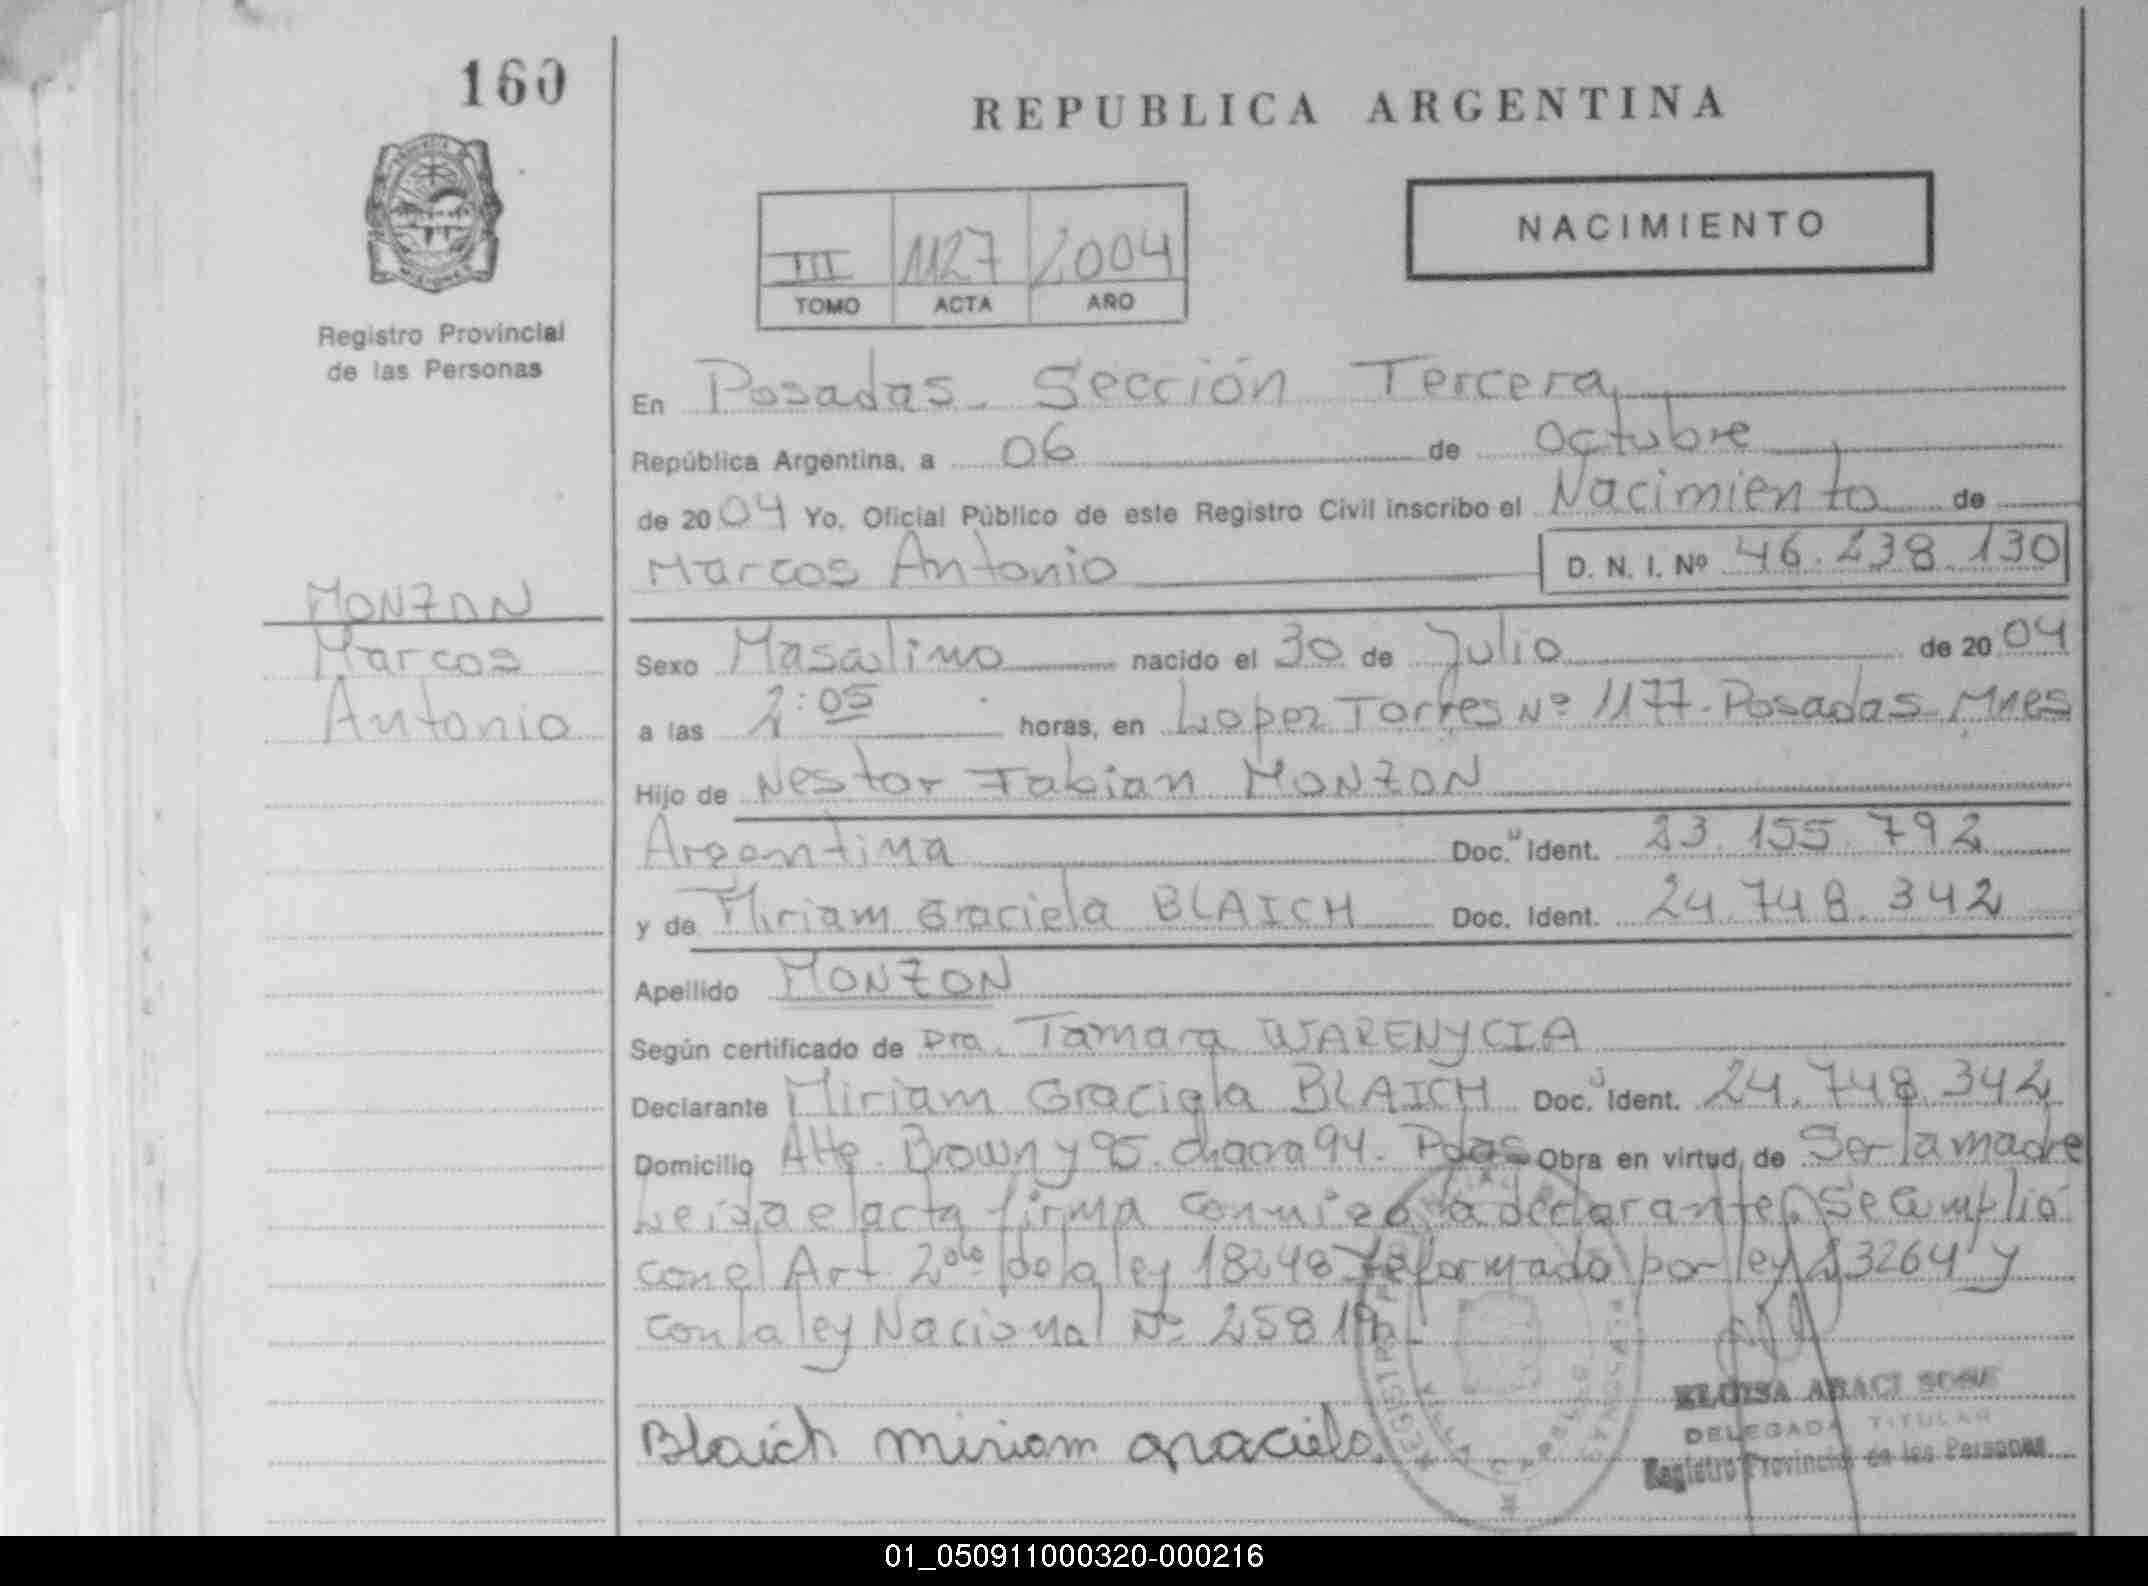 160
REPUBLICA ARGENTINA
NACIMIENTO
III 1127 2004
TOMO ACTA AÑO
Registro Provincial
de las Personas
En Posadas - Sección Tercera
República Argentina, a 06 de Octubre
de 2004 Yo, Oficial Público de este Registro Civil inscribo el Nacimiento de
Marcos Antonio D. N. I. Nº 46.238.130
MONZON
Marcos
Antonio
Sexo Masculino nacido el 30 de Julio de 2004
a las 2:05 horas, en Lopez Torres Nº 1177. Posadas Mnes
Hijo de Nestor Fabian MONZON
Argentina Doc. Ident. 23.155.792
y de Miriam Graciela BLAICH Doc. Ident. 24.748.342
Apellido MONZON
Según certificado de Dra. Tamara WARENYCIA
Declarante Miriam Graciela BLAICH Doc. Ident. 24.748.342
Domicilio Alte. Brown y 95. chacra 94. Pdas Obra en virtud de Ser la madre
Leida el acta firma conmigo la declarante. Se cumplió
con el Art 2do de la ley 18248 reformado por ley 23264 y
con la ley Nacional Nº 25819
Blaich miriam graciela.
ELOISA ARACI SOSA
DELEGADA TITULAR
Registro Provincial de las Personas
01_050911000320-000216